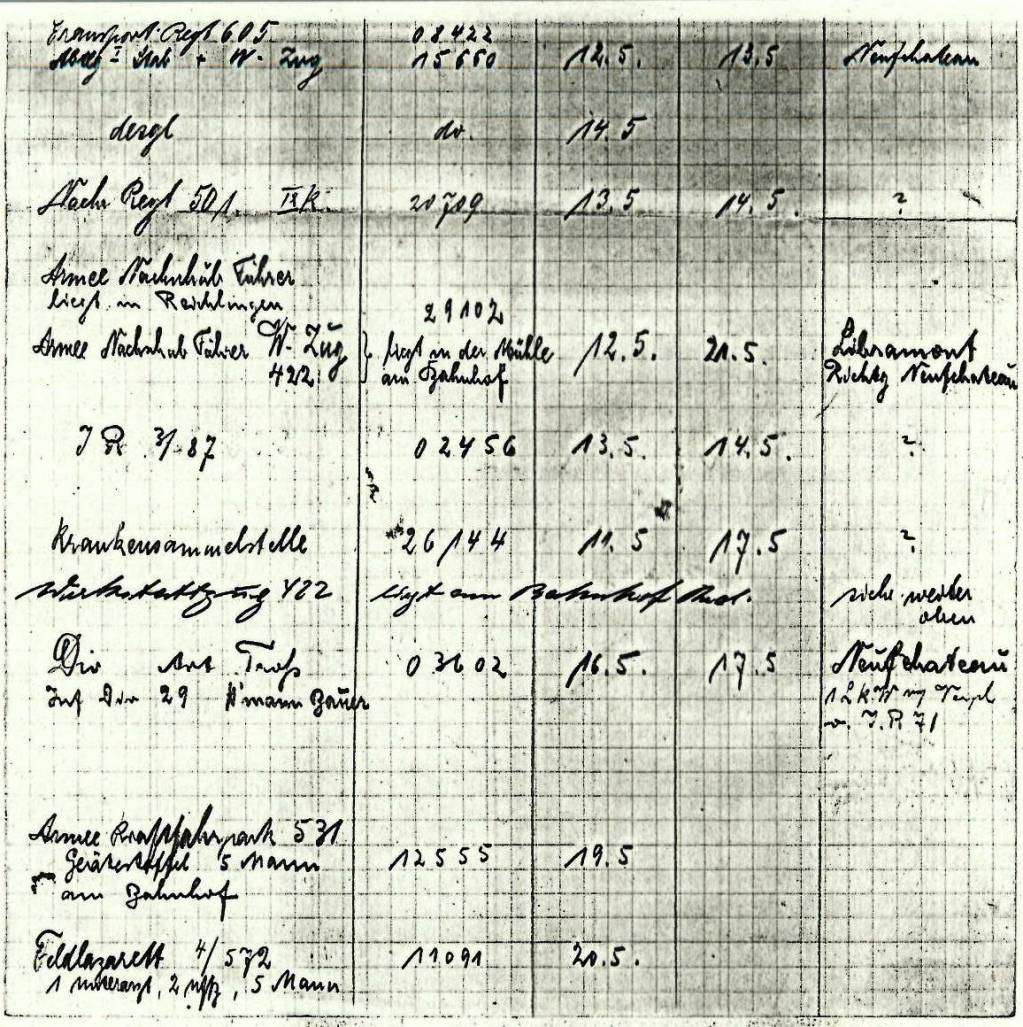 Transport-Regt 605 08422
Abtlg I Stab + W. Zug 15660 12.5. 13.5 Neufchateau
desgl do. 14.5
Nachr Regt 501. 20709 13.5 14.5. ?
Armee Nachschub Führer
liegt in Reichlingen 29102
Armee Nachschub Führer W. Zug } liegt in der Mühle 12.5. 21.5. Libramont
422 am Bahnhof Richtg Neufchateau
I R 3/87 02456 13.5. 14.5. ?
Krankensammelstelle 26144 11.5 17.5 ?
Werkstattzug 422 liegt am Bahnhof siehe weiter
oben
Div Art Troß 03602 16.5. 17.5 Neufchateau
Inf Div 29 H'mann Bauer 1 LKW
v. I.R 71
Armee Kraftfahrpark 531
Gerätestaffel 5 Mann 12555 19.5
am Bahnhof
Feldlazarett 4/572 11091 20.5.
1 Unterarzt, 2 Uffz, 5 Mann